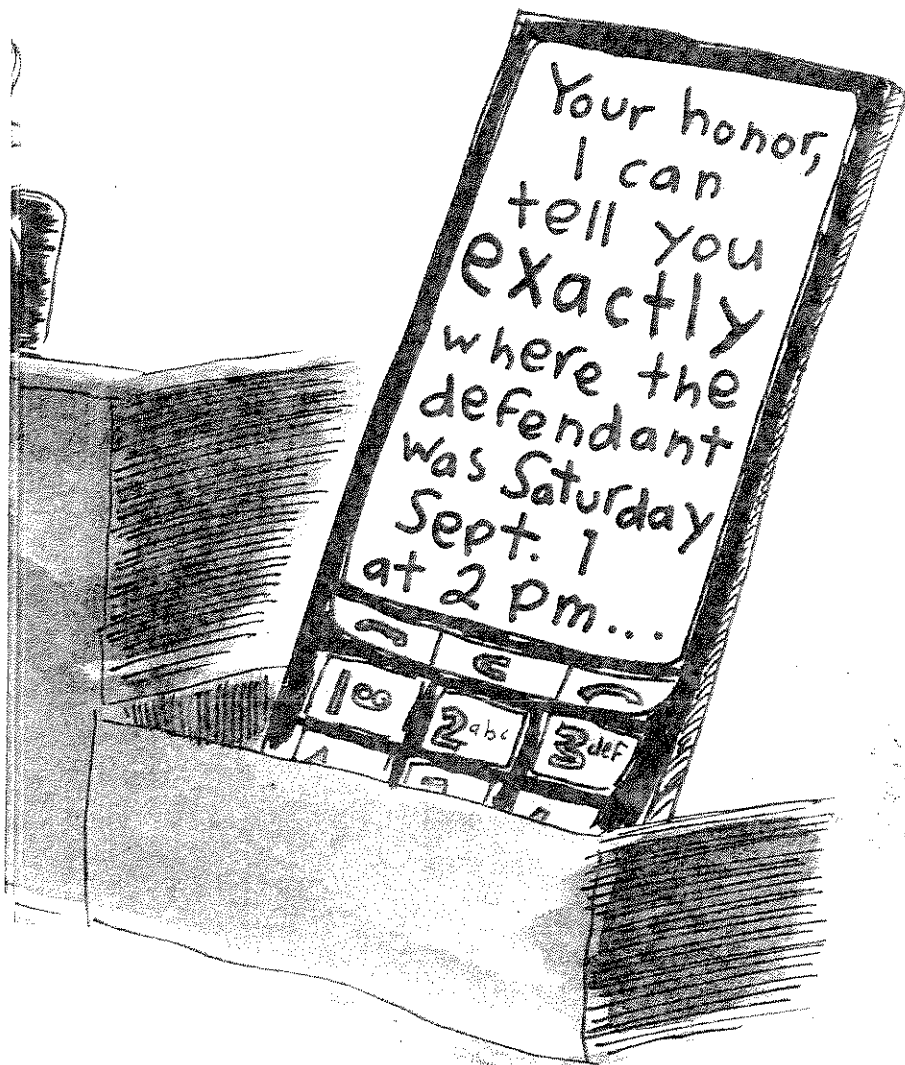 Your honor,
I can
tell you
exactly
where the
defendant
was Saturday
Sept. 1
at 2 pm...
1 2 abc 3 def